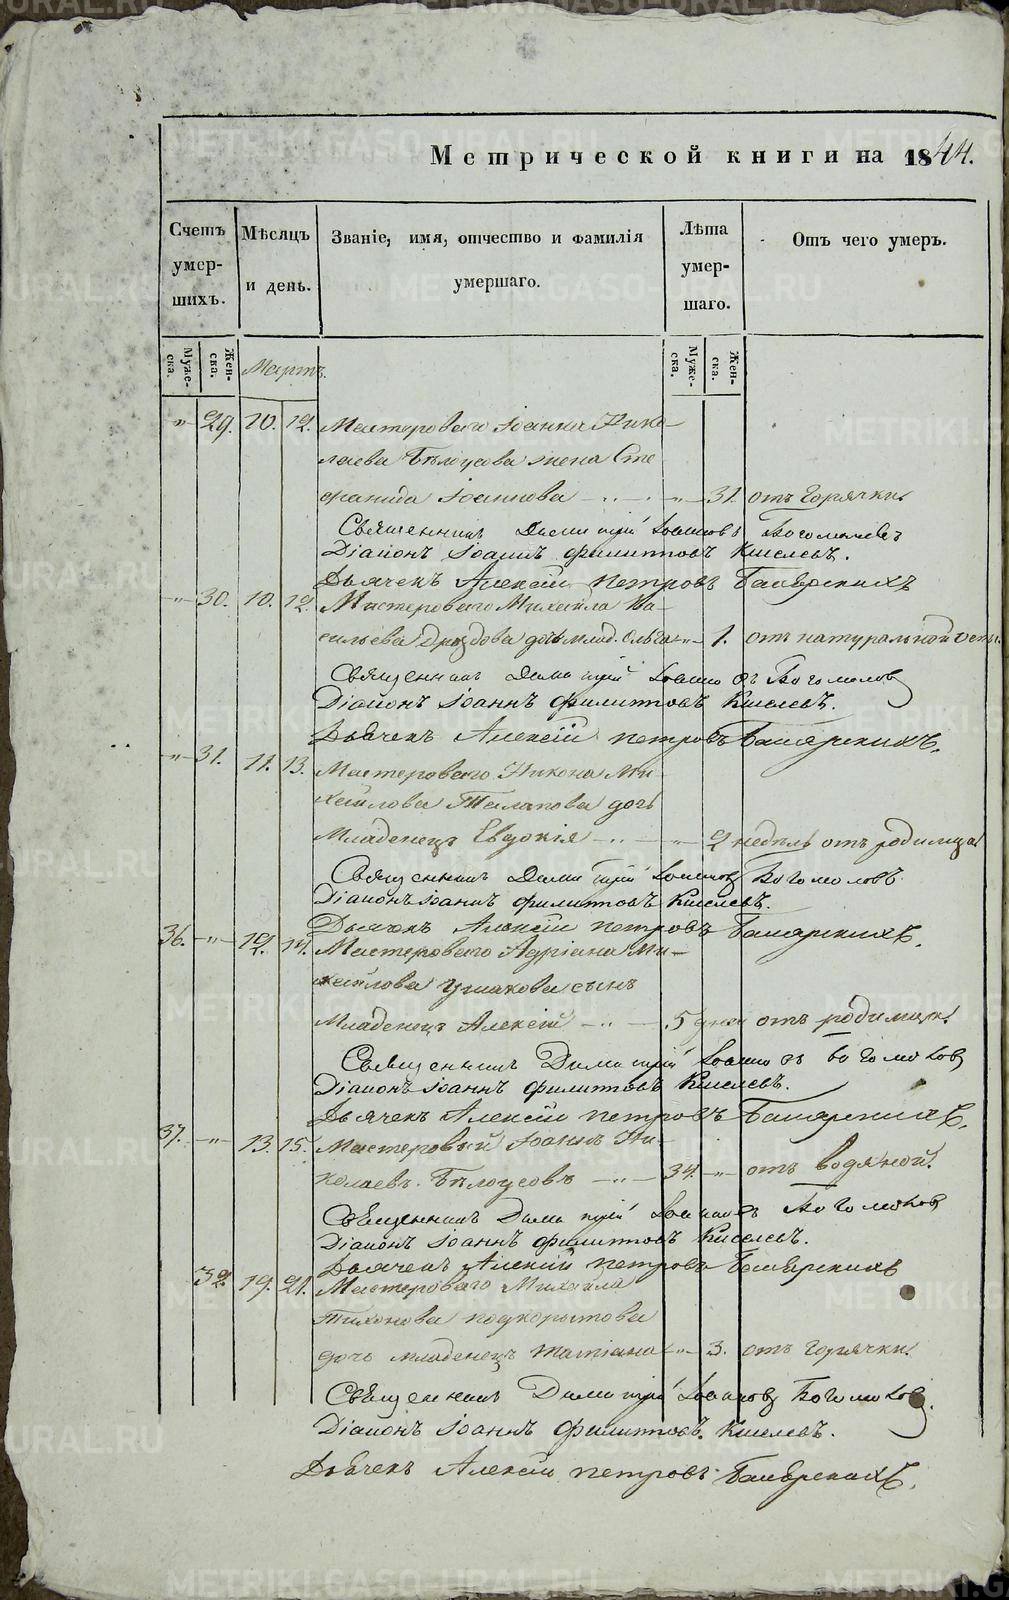 Метрической книги на 1844.
Счетъ умер-шихъ.
Мѣсяцъ и день.
Званіе, имя, отчество и фамилія умершаго.
Лѣта умер-шаго.
Отъ чего умеръ.
Муже-ска. Жен-ска. Мартъ. Муже-ска. Жен-ска.
„ 29. 10. 12. Мастероваго Іоанна Нико-
лаева Бѣлоусова жена Сте
фанида Іоаннова „ 31. отъ горячки
Священникъ Димитрій Іоанновъ Богомоловъ
Діаконъ Іоаннъ Филитовъ Киселевъ.
Дьячекъ Алексій Петровъ
„ 30. 10. 12. Мастероваго Михаила Ва-
сильева Дроздова дочь млад. Ольга „ 1. отъ натуральной оспы.
Священникъ Димитрій Іоанновъ Богомоловъ
Діаконъ Іоаннъ Филитовъ Киселевъ.
Дьячекъ Алексій Петровъ
„ 31. 11. 13. Мастероваго Никона Ми-
хайлова дочь
Младенецъ Евдокія „ 2 недѣль отъ родимца
Священникъ Димитрій Іоанновъ Богомоловъ
Діаконъ Іоаннъ Филитовъ Киселевъ.
Дьячекъ Алексій Петровъ
36. „ 12. 14. Мастероваго Адріана Ми-
хайлова Ушакова сынъ
Младенецъ Алексій 5 дней отъ родимца.
Священникъ Димитрій Іоанновъ Богомоловъ
Діаконъ Іоаннъ Филитовъ Киселевъ.
Дьячекъ Алексій Петровъ
37. „ 13. 15. Мастеровый Іоаннъ Ни-
колаевъ Бѣлоусовъ 34. „ отъ водяной.
Священникъ Димитрій Іоанновъ Богомоловъ
Діаконъ Іоаннъ Филитовъ Киселевъ.
Дьячекъ Алексій Петровъ
32. 19. 21. Мастероваго Михаила
Тихонова Подкорытова
дочь младенецъ Татіана „ 3. отъ горячки.
Священникъ Димитрій Іоанновъ Богомоловъ
Діаконъ Іоаннъ Филитовъ Киселевъ.
Дьячекъ Алексій Петровъ
METRIKI.GASO-URAL.RU